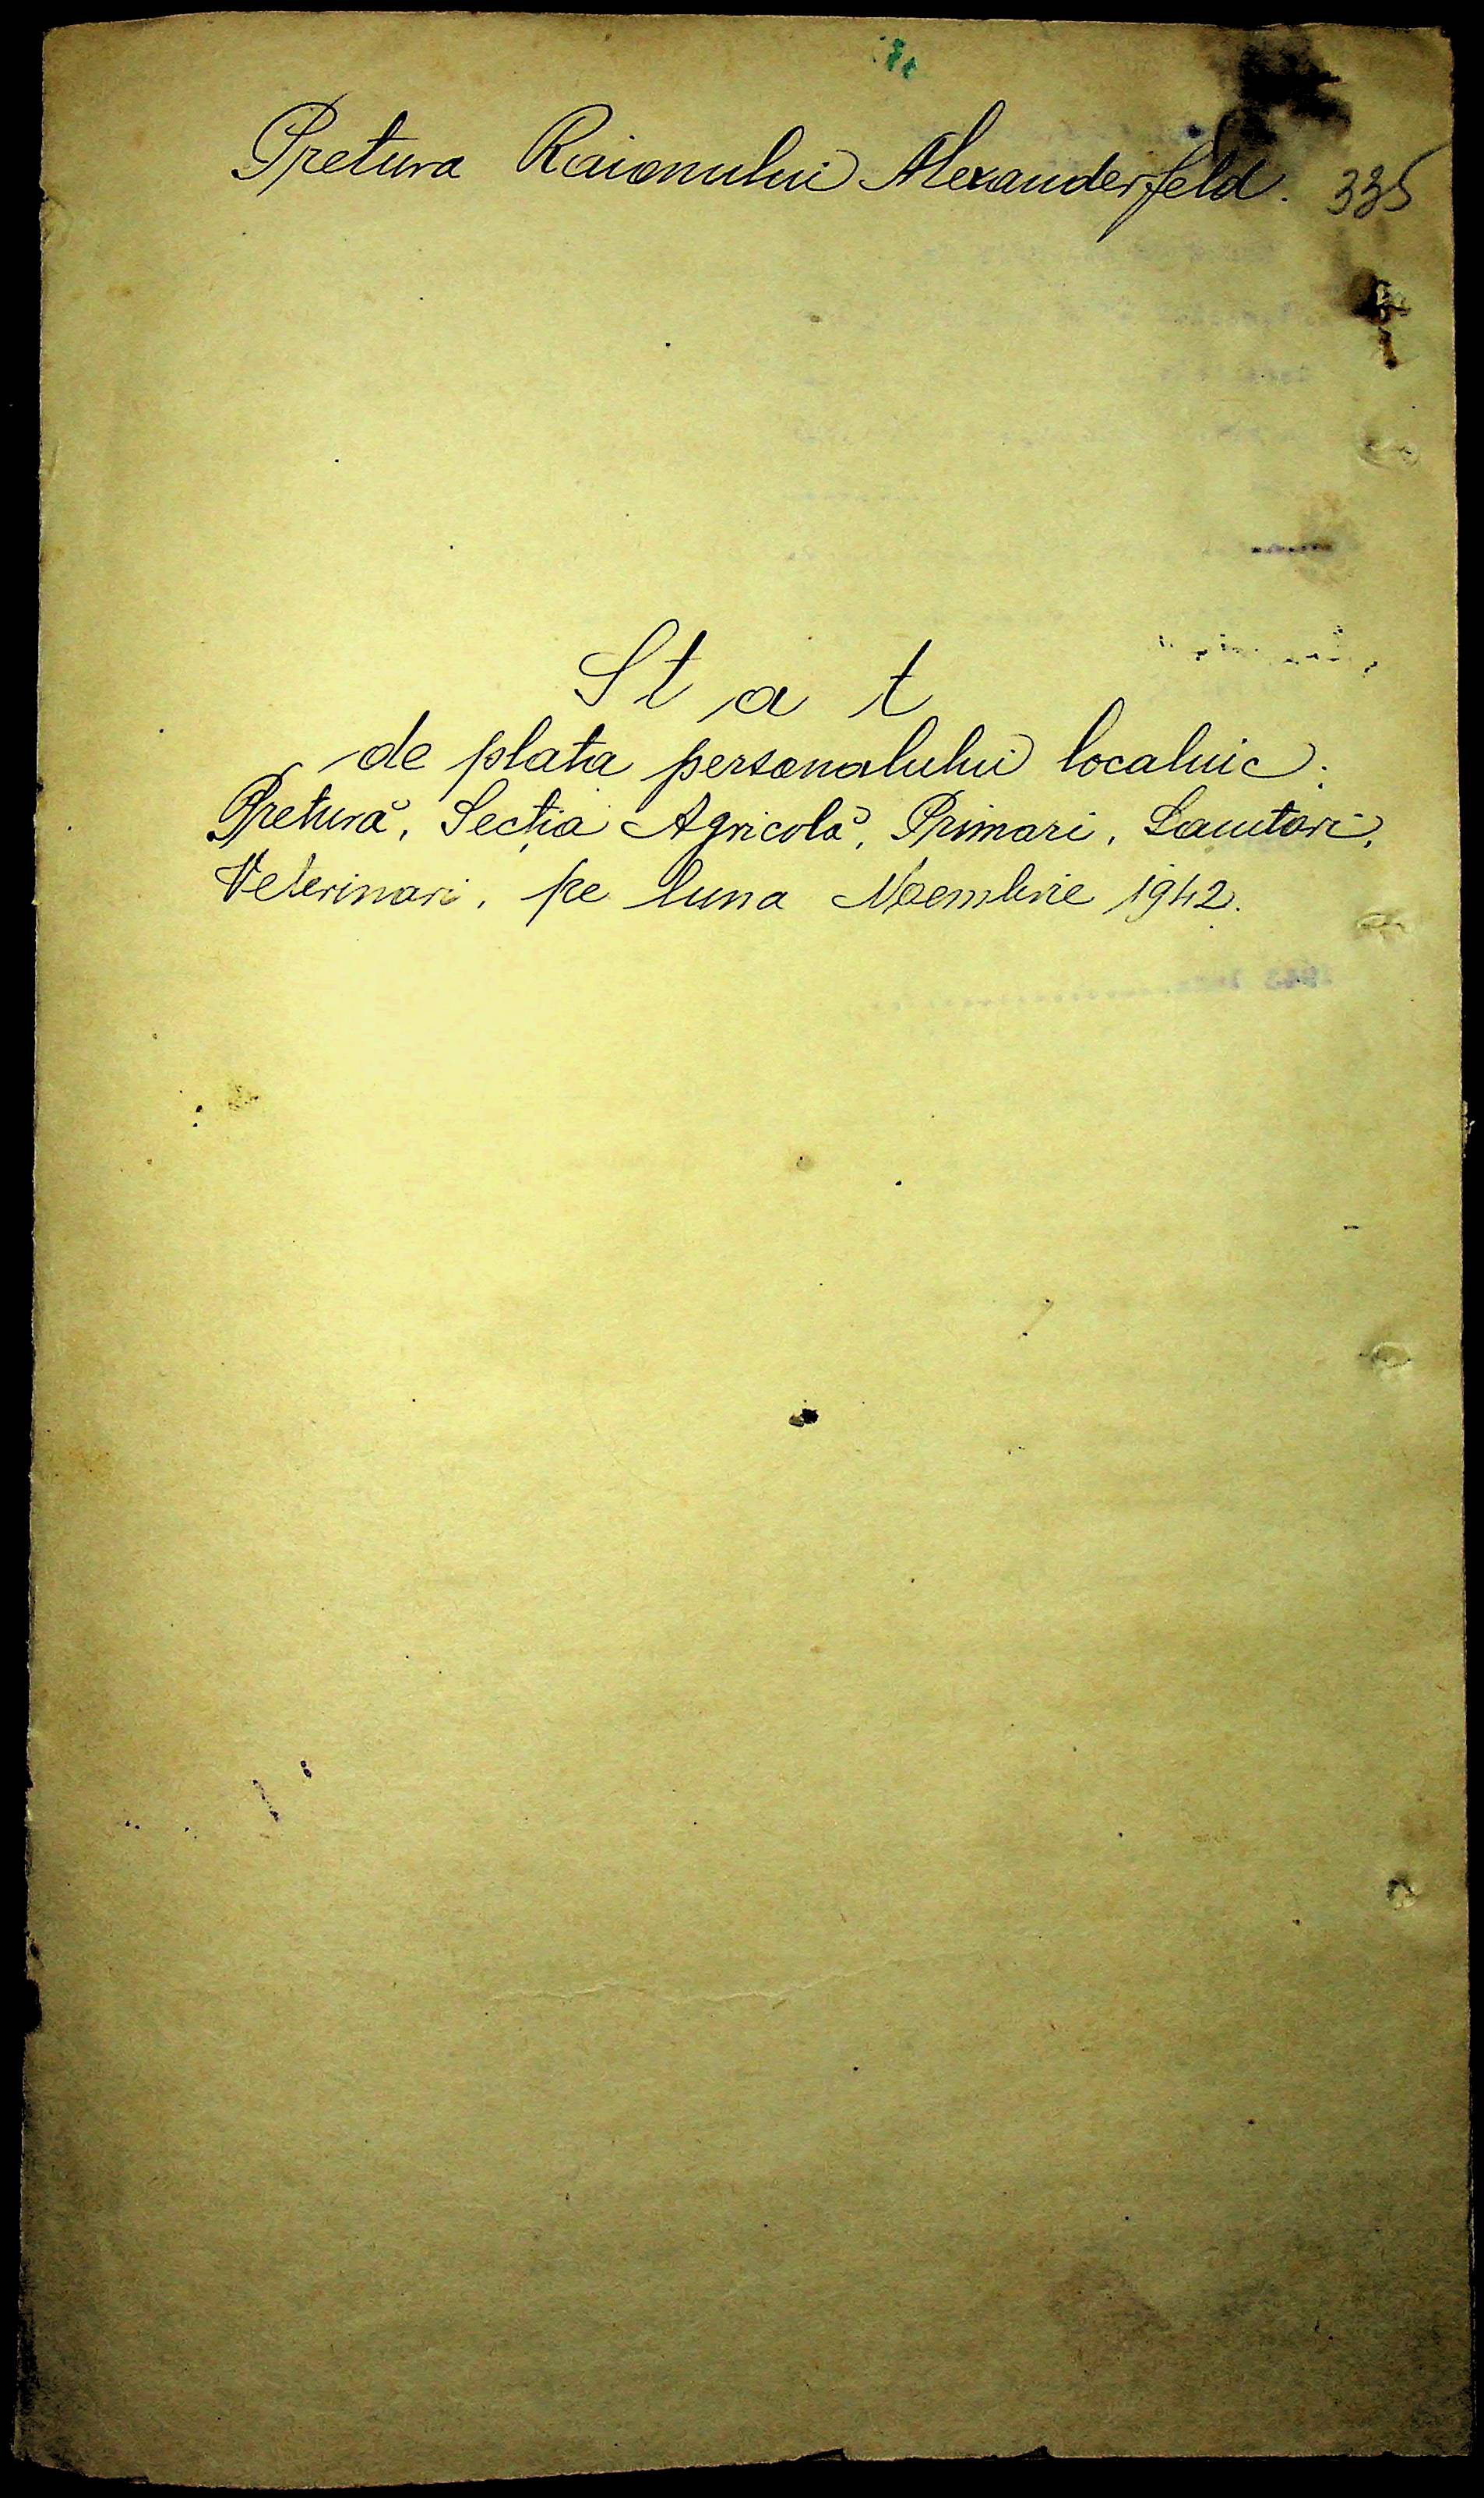 Pretura Raionului Alexanderfeld. 335
Stat
de plata personalului localnic:
Pretură, Secția Agricolă, Primari, Sanitari,
Veterinari, pe luna Noembrie 1942.